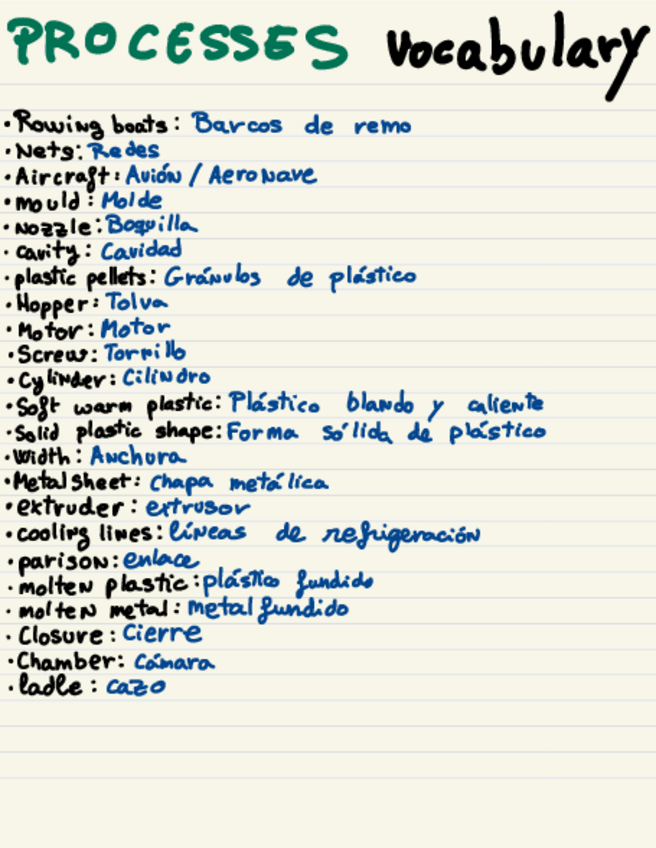 PROCESSES Vocabulary
• Rowing boats: Barcos de remo
• Nets: Redes
• Aircraft: Avión / Aeronave
• mould: Molde
• Nozzle: Boquilla
• cavity: Cavidad
• plastic pellets: Gránulos de plástico
• Hopper: Tolva
• Motor: Motor
• Screw: Tornillo
• Cylinder: Cilindro
• Soft warm plastic: Plástico blando y caliente
• Solid plastic shape: Forma sólida de plástico
• Width: Anchura
• Metal sheet: chapa metálica
• extruder: extrusor
• cooling lines: líneas de refrigeración
• parison: enlace
• molten plastic: plástico fundido
• molten metal: metal fundido
• Closure: Cierre
• Chamber: Cámara
• ladle: cazo